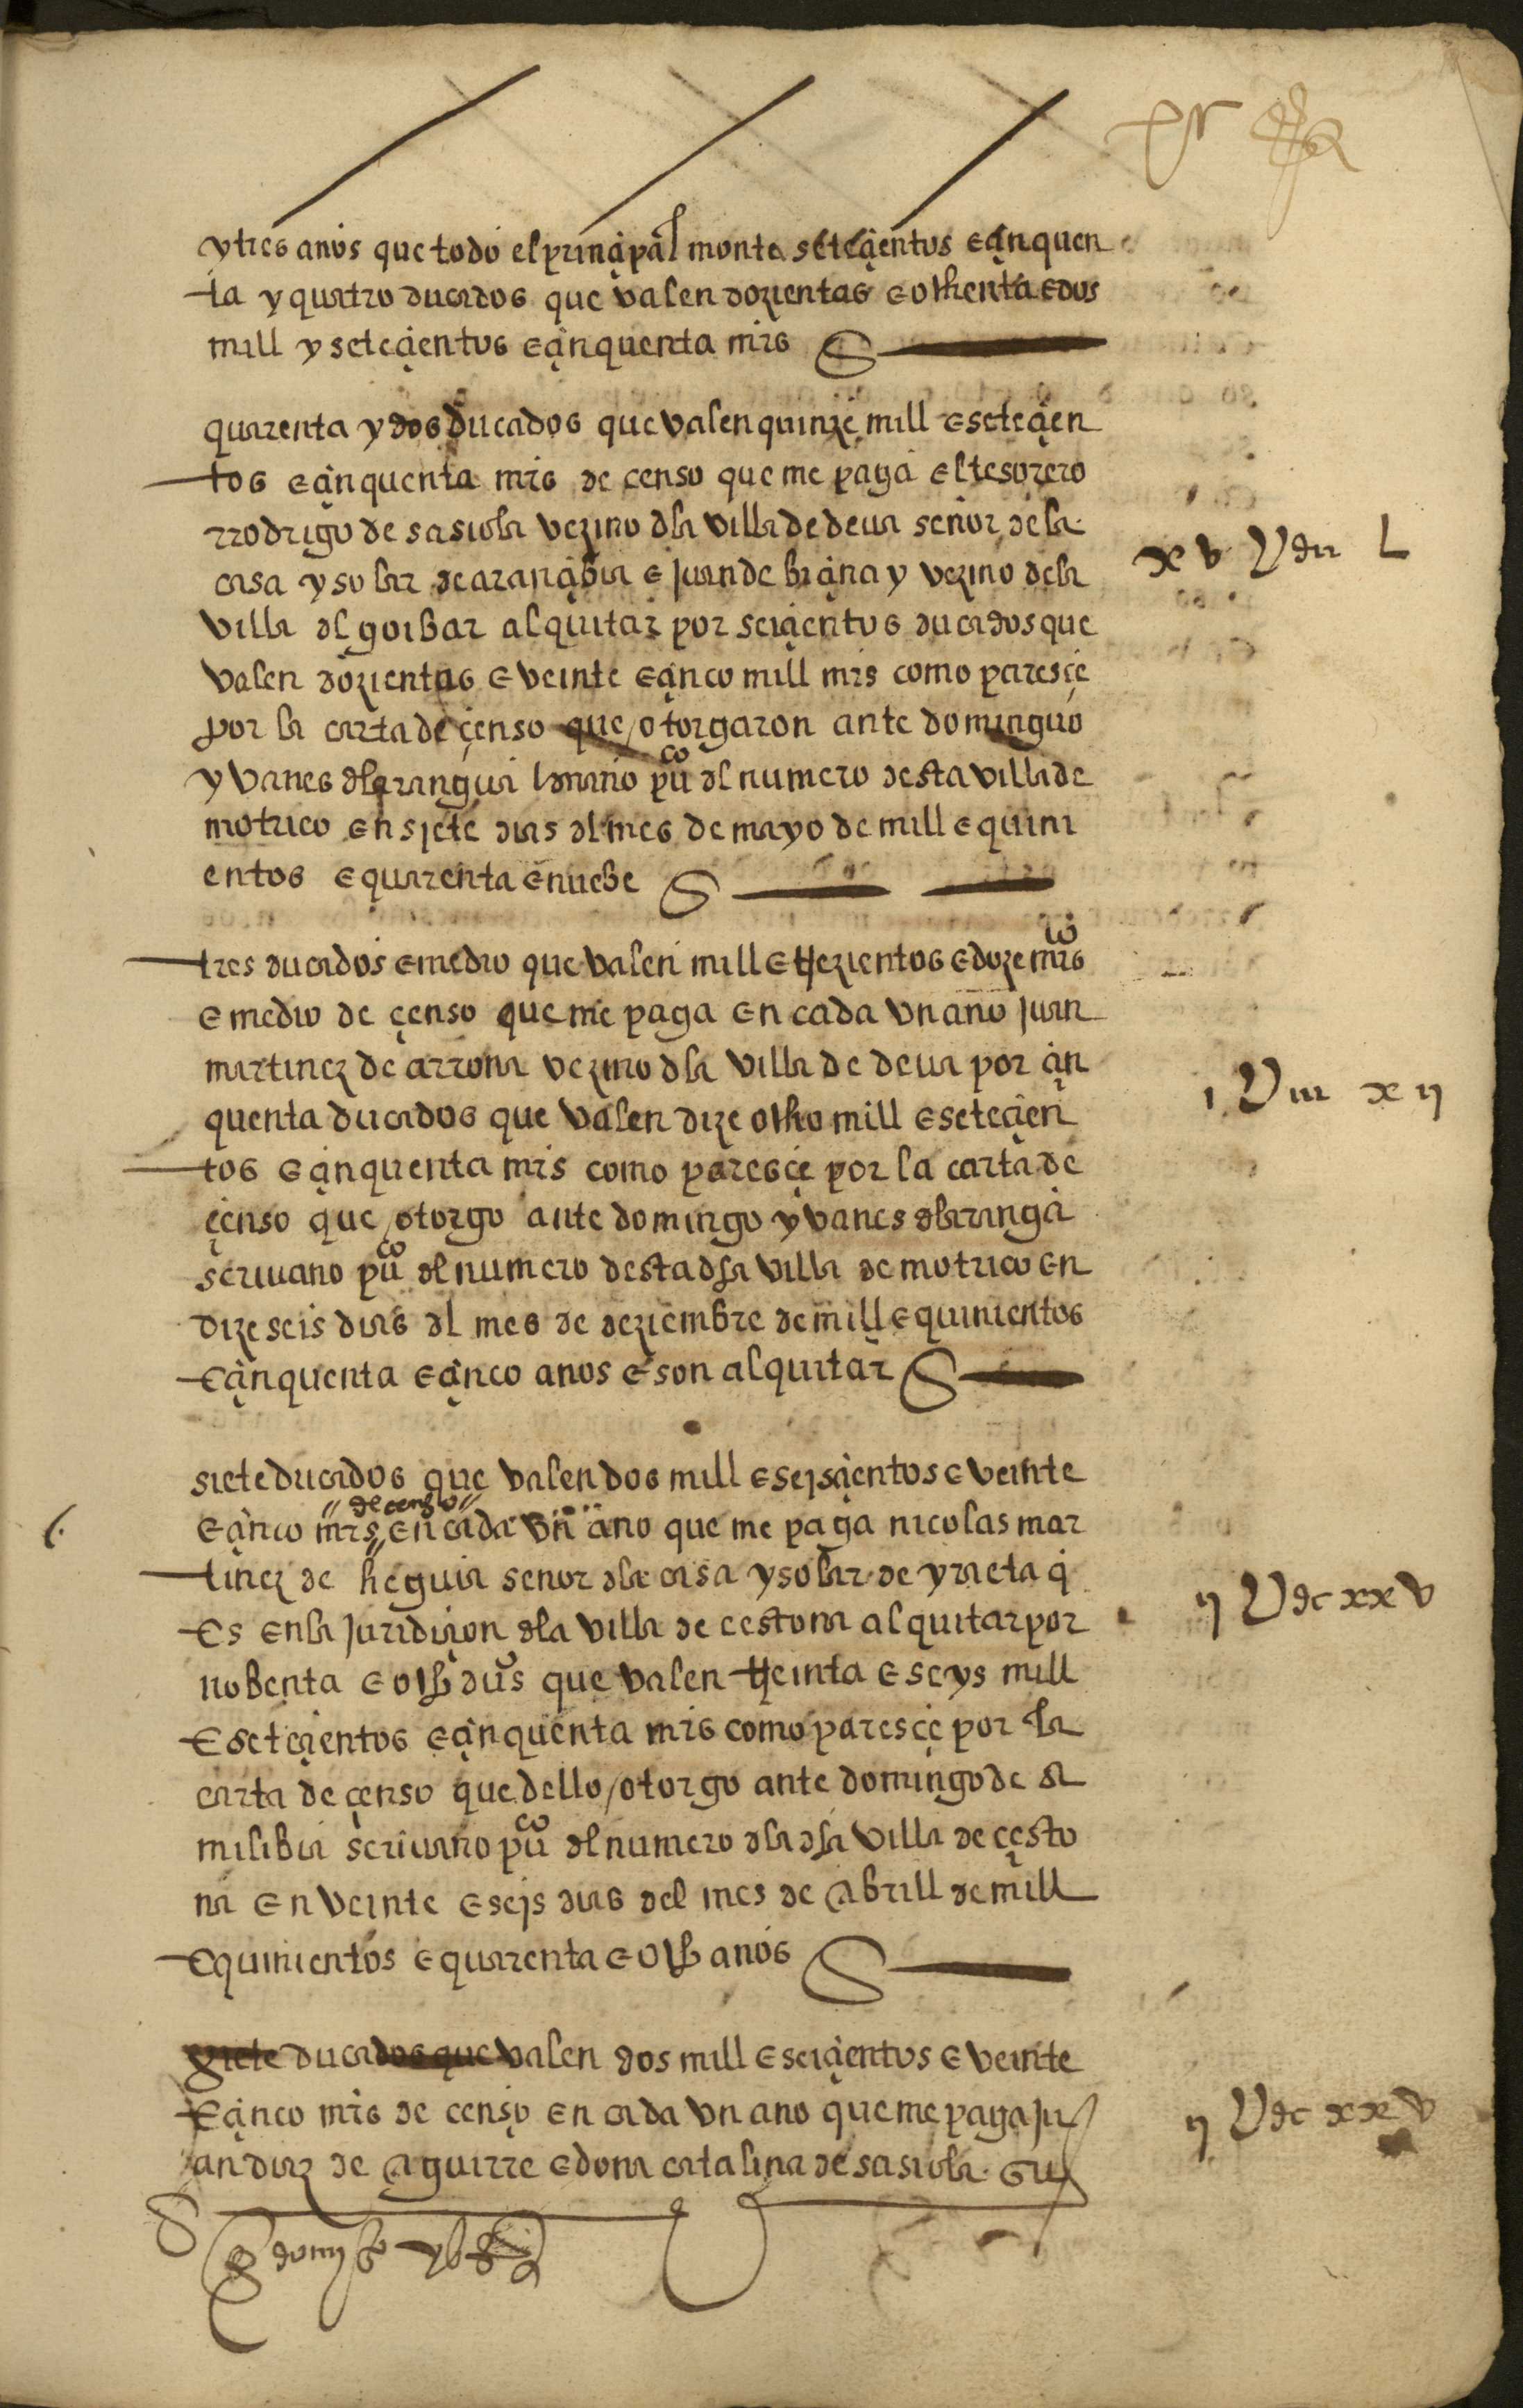 y tres anos que todo el prinçipal monta seteçientos e çinquen
ta y quatro ducados que valen dozientas e othenta e dos
mill y seteçientos e çinquenta mrs
quarenta y dos ducados que valen quinze mill e seteçien
tos e çinquenta mrs de censo que me paga el tesorero
rrodrigo de sasiola vezino dla villa de deua señor de la
casa y solar de arançibia e juan de briçna y vezino de la
villa del goibar al quitar por seiçientos ducados que
valen dozientas e veinte e çinco mill mrs como paresçe
por la carta de çenso que otorgaron ante dominguo
yvanes dlarangui puco del numero desta villa de
motrico en siete dias del mes de mayo de mill e quini
entos e quarenta e nuebe
xv U dcc L
tres ducados e medio que valen mill e trezientos e doze mrs
e medio de çenso que me paga en cada vn ano juan
martinez de arrona vezino dla villa de deua por çin
quenta ducados que valen dize otho mill e seteçien
tos e çinquenta mrs como paresçe por la carta de
çenso que otorgo ante domingo yvanes dlarangui
scriuano puco del numero desta dha villa de motrico en
dize seis dias del mes de deziembre de mill e quinientos
e çinquenta e çinco anos e son al quitar
i U iii xii
siete ducados que valen dos mill e seisçientos e veinte
e çinco mrs de censo en cada vn ano que me paga nicolas mar
tinez de heguia senor dla casa y solar de yraeta q
es en la juridiçion dla villa de cestona al quitar por
nobenta e otho dus que valen treinta e seys mill
e seteçientos e çinquenta mrs como paresçe por la
carta de çenso que dello otorgo ante domingo de a
milibia scriuano puco del numero dla dha villa de çesto
na en veinte e seis dias del mes de abrill de mill
e quinientos e quarenta e otho anos
ii U dc xxv
siete ducados que valen dos mill e seiçientos e veinte
e çinco mrs de censo en cada vn ano que me paga ju
an diaz de aguirre e dona catalina de sasiola su
ii U dc xxv